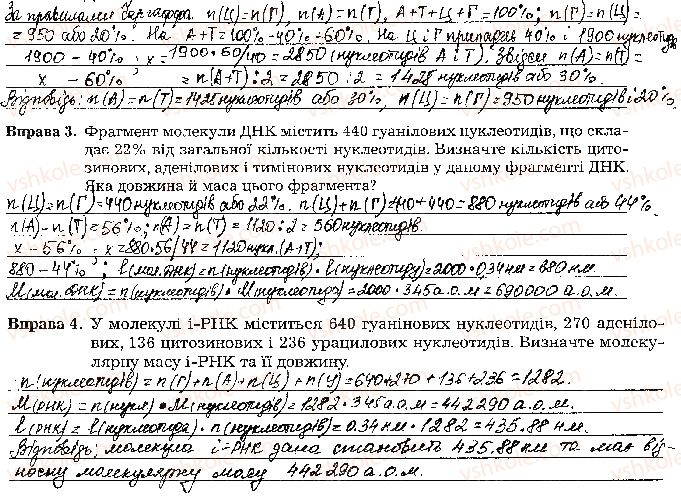 За правилами Чергаффа. n(Ц)=n(Г), n(A)=n(T), A+T+Ц+Г=100%; n(Г)=n(Ц)=
=950 або 20%. На A+T=100%-40%=60%. На Ц і Г припадає 40% і 1900 нуклеотидів
1900 - 40%; x=1900·60/40=2850 (нуклеотидів А і Т). Звідси n(A)=n(T)=
x - 60% = n(A+T):2=2850:2=1425 нуклеотидів або 30%.
Відповідь: n(A)=n(T)=1425 нуклеотидів або 30%, n(Ц)=n(Г)=950 нуклеотидів і 20%
Вправа 3. Фрагмент молекули ДНК містить 440 гуанілових нуклеотидів, що скла-
дає 22% від загальної кількості нуклеотидів. Визначте кількість цито-
зинових, аденілових і тимінових нуклеотидів у даному фрагменті ДНК.
Яка довжина й маса цього фрагмента?
n(Ц)=n(Г)=440 нуклеотидів або 22%. n(Ц)+n(Г)=440+440=880 нуклеотидів або 44%.
n(A)-n(T)=56%; n(A)=n(T)=1120:2=560 нуклеотидів.
x - 56%; x=880·56/44=1120 нукл. (A+T);
880 - 44%; l(мол. ДНК)=n(нуклеотидів)·l(нуклеотиду)=2000·0.34нм=680 нм.
M(мол. ДНК)=n(нуклеотидів)·M(нуклеотиду)=2000·345а.о.м=690000 а.о.м.
Вправа 4. У молекулі і-РНК міститься 640 гуанінових нуклеотидів, 270 аденіло-
вих, 136 цитозинових і 236 урацилових нуклеотидів. Визначте молеку-
лярну масу і-РНК та її довжину.
n(нуклеотидів)=n(Г)+n(A)+n(Ц)+n(У)=640+270+136+236=1282.
M(РНК)=n(нукл)·M(нуклеотидів)=1282·345а.о.м=442290 а.о.м.
l(РНК)=l(нуклеотида)·n(нуклеотидів)=0.34нм·1282=435.88 нм.
Відповідь: молекула і-РНК дана становить 435.88 нм та має від-
носну молекулярну масу 442290 а.о.м.